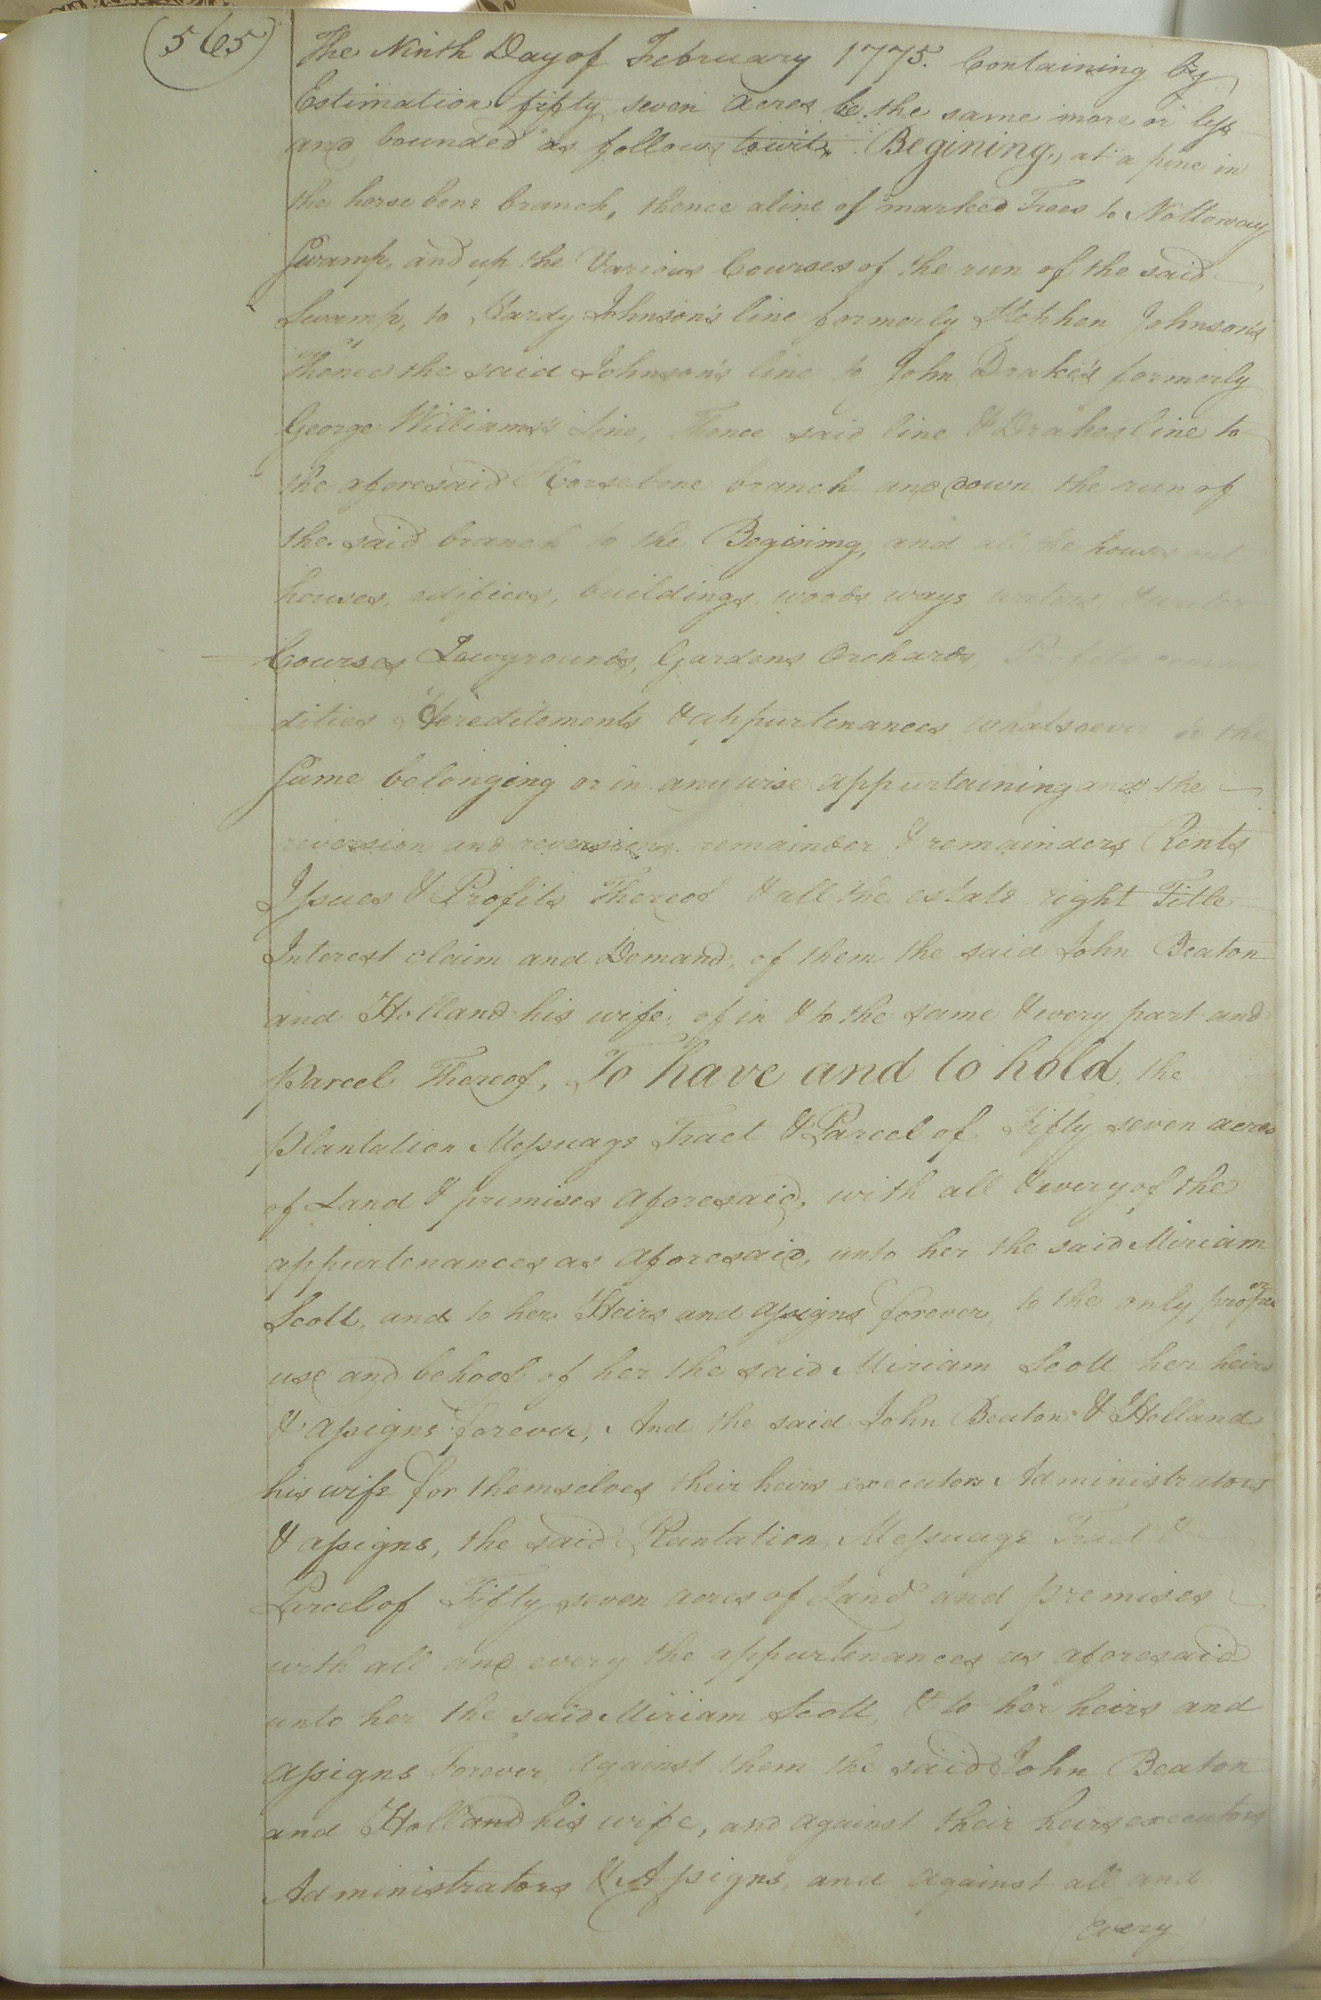 (565)
The Ninth Day of February 1775. Containing by
Estimation fifty seven acres be the same more or less
and bounded as follows towit, Begining, at a pine in
the horse bone branch, thence aline of marked Trees to Nottoway
Swamp, and up the Various Courses of the run of the said
Swamp, to Hardy Johnson's line formerly Stephen Johnson's
Thence the said Johnson's line to John Drake's formerly
George Williams's Line, Thence said line & Drakes line to
the aforesaid Horsebone branch and down the run of
the said branch to the Begining, and all the houses out
houses, edifices, buildings woods ways waters & water
Courses Lowgrounds, Gardens Orchards Profits comm
dities Hereditements & appurtenances whatsoever to the
Same belonging or in anywise appurtaining and the
reversion and reversions remainder & remainders Rents
Issues & Profits Thereof & all the estate right Title
Interest claim and Demand, of them the said John Beaton
and Holland his wife, of in & to the same & every part and
parcel Thereof, To have and to hold the
Plantation Messuage Tract & Parcel of Fifty seven acres
of Land & premises aforesaid, with all & every of the
appurtenances as aforesaid, unto her the said Miriam
Scott, and to her Heirs and assigns forever, to the only proper
use and behoof of her the said Miriam Scott her heirs
& assigns forever, And the said John Beaton & Holland
his wife for themselves their heirs executors Administrators
& assigns, the said Plantation, Messuage Tract &
Parcel of Fifty seven acres of Land and premises
with all and every the appurtenances as aforesaid
unto her the said Miriam Scott, & to her heirs and
assigns Forever against them the said John Beaton
and Holland his wife, and against their heirs executors
Administrators & Assigns, and against all and
every